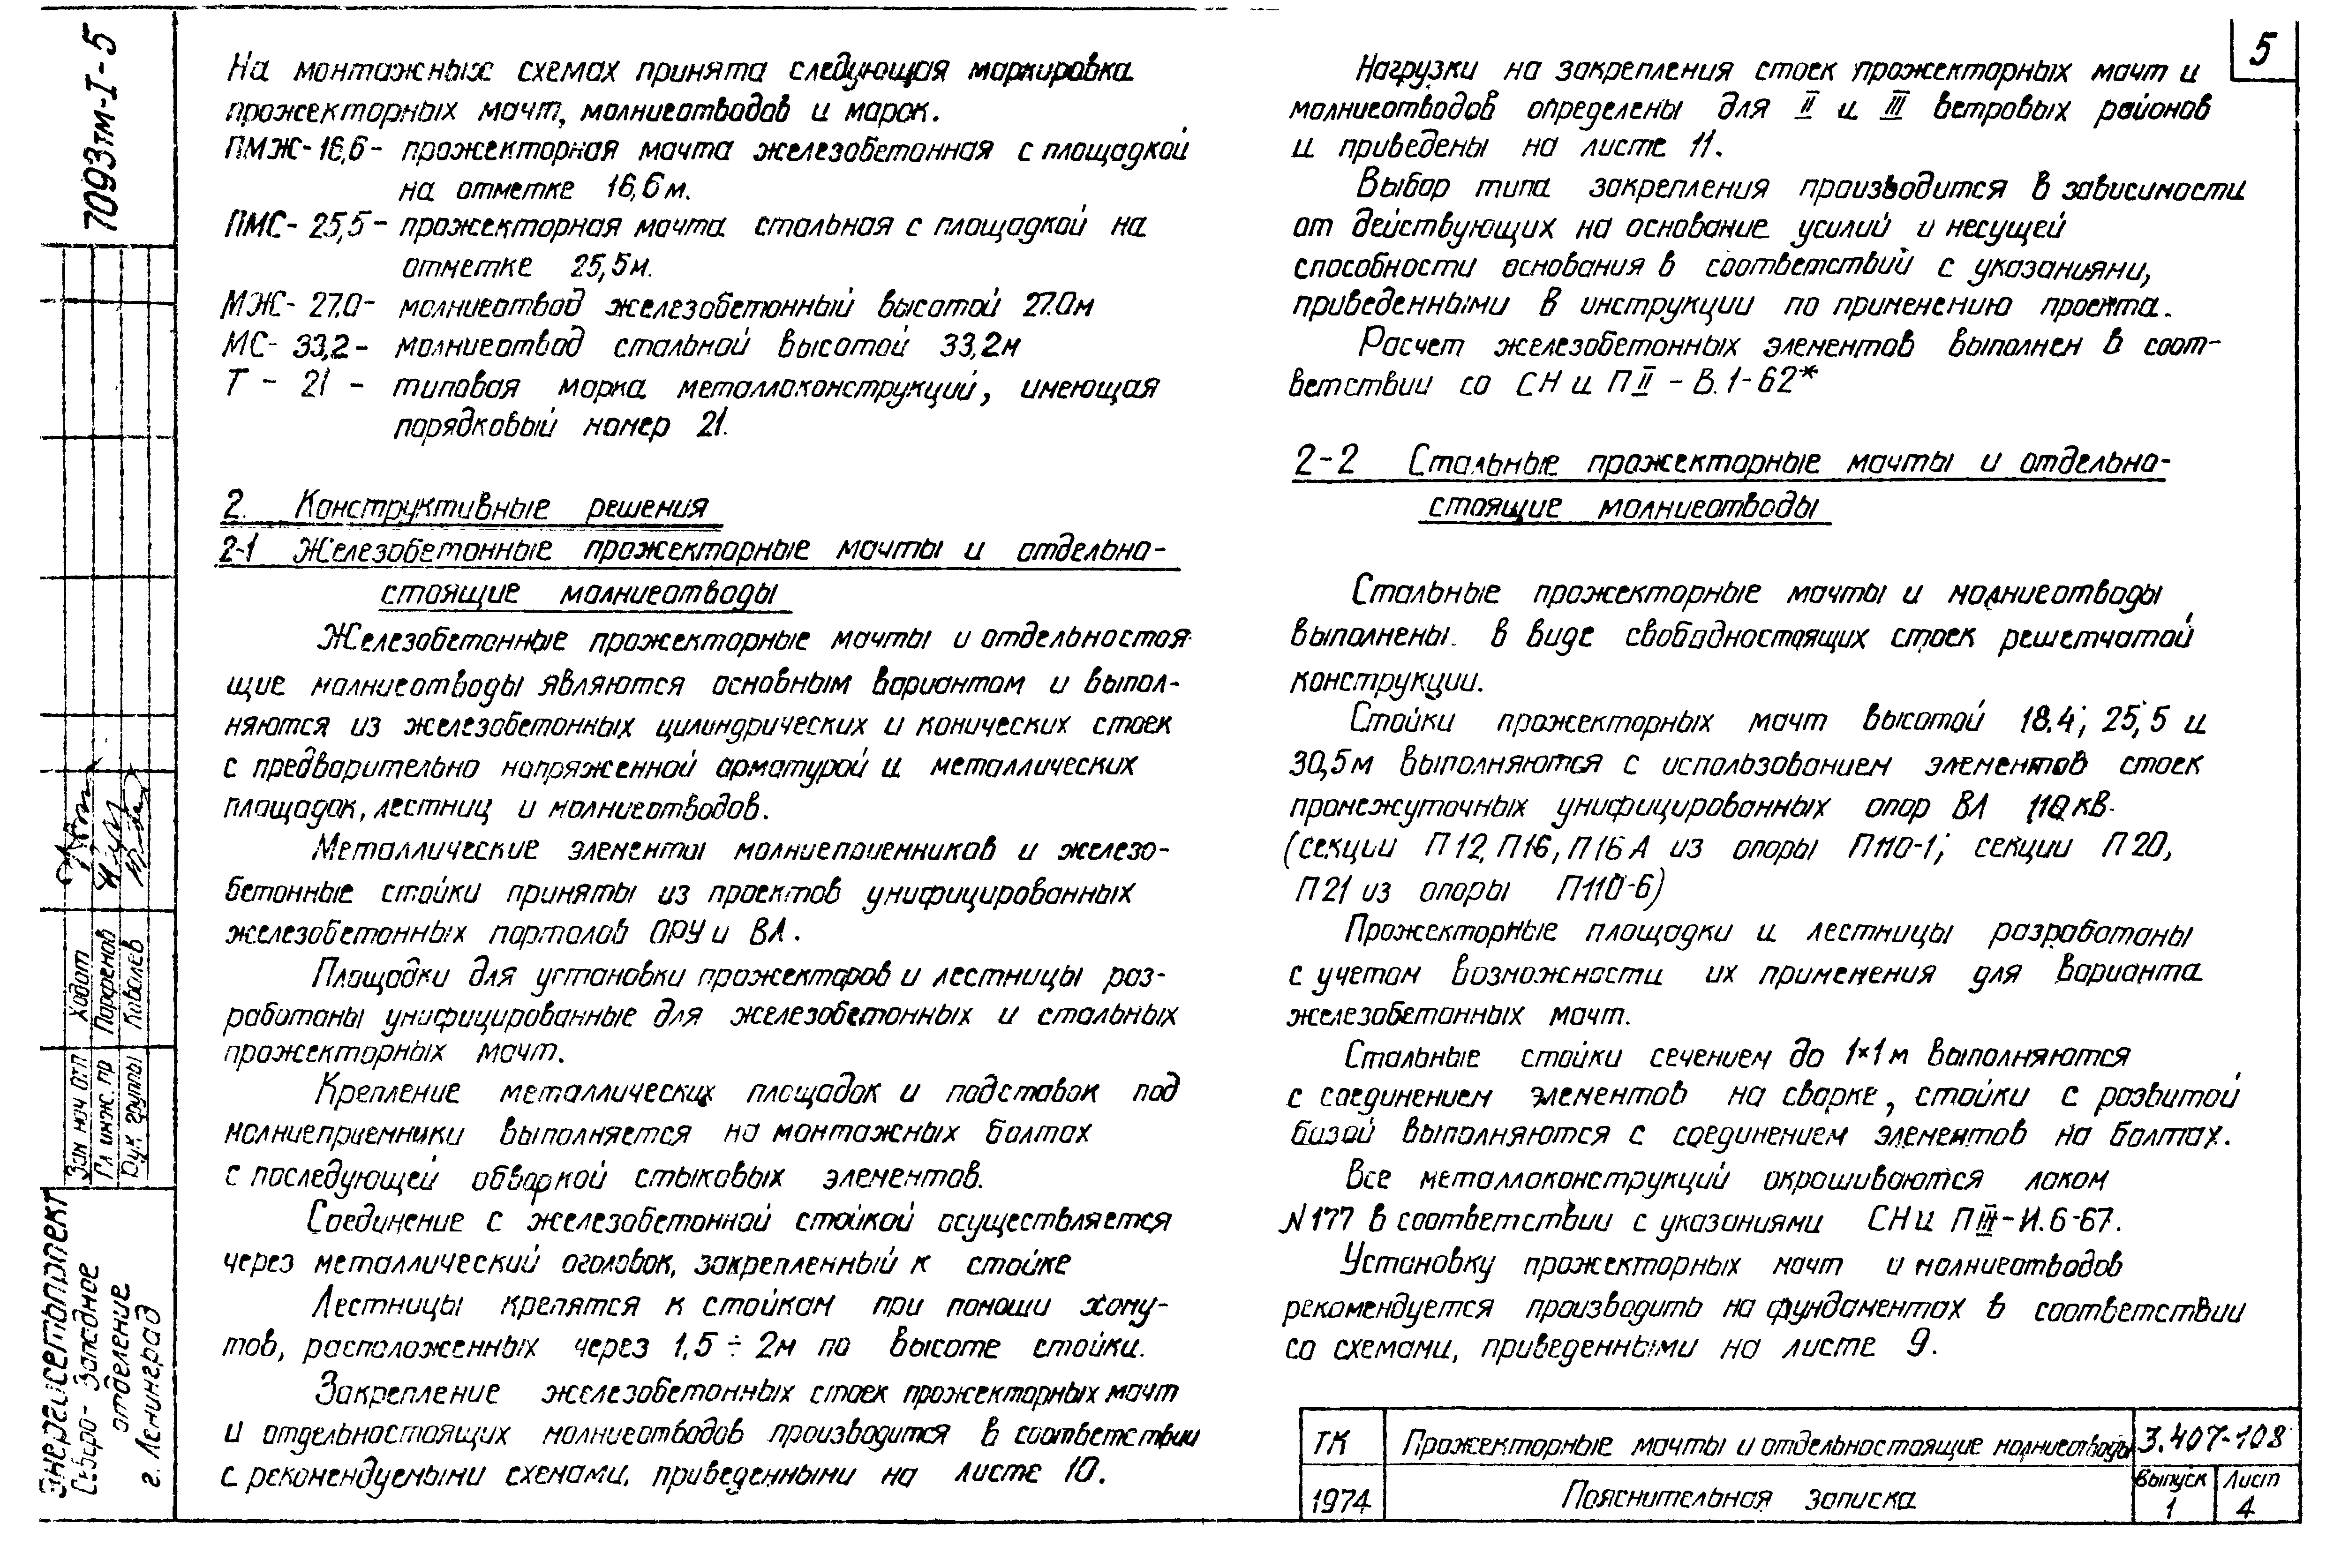 7093тм-I-5
5
На монтажных схемах принята следующая маркировка
прожекторных мачт, молниеотводов и марок.
ПМЖ-16,6- прожекторная мачта железобетонная с площадкой
на отметке 16,6м.
ПМС-25,5- прожекторная мачта стальная с площадкой на
отметке 25,5м.
МЖ-27.0- молниеотвод железобетонный высотой 27.0м
МС-33,2- молниеотвод стальной высотой 33,2м
Т - 21 - типовая марка металлоконструкций, имеющая
порядковый номер 21.
2. Конструктивные решения
2-1 Железобетонные прожекторные мачты и отдельно-
стоящие молниеотводы
Железобетонные прожекторные мачты и отдельностоя-
щие молниеотводы являются основным вариантом и выпол-
няются из железобетонных цилиндрических и конических стоек
с предварительно напряженной арматурой и металлических
площадок, лестниц и молниеотводов.
Металлические элементы молниеприемников и железо-
бетонные стойки приняты из проектов унифицированных
железобетонных порталов ОРУ и ВЛ.
Площадки для установки прожекторов и лестницы раз-
работаны унифицированные для железобетонных и стальных
прожекторных мачт.
Крепление металлических площадок и подставок под
молниеприемники выполняется на монтажных болтах
с последующей обваркой стыковых элементов.
Соединение с железобетонной стойкой осуществляется
через металлический оголовок, закрепленный к стойке
Лестницы крепятся к стойкам при помощи хому-
тов, расположенных через 1,5÷2м по высоте стойки.
Закрепление железобетонных стоек прожекторных мачт
и отдельностоящих молниеотводов производится в соответствии
с рекомендуемыми схемами, приведенными на листе 10.
Нагрузки на закрепления стоек прожекторных мачт и
молниеотводов определены для II и III ветровых районов
и приведены на листе 11.
Выбор типа закрепления производится в зависимости
от действующих на основание усилий и несущей
способности основания в соответствий с указаниями,
приведенными в инструкции по применению проекта.
Расчет железобетонных элементов выполнен в соот-
ветствии со СН и П II - В.1-62*
2-2 Стальные прожекторные мачты и отдельно-
стоящие молниеотводы
Стальные прожекторные мачты и молниеотводы
выполнены в виде свободностоящих стоек решетчатой
конструкции.
Стойки прожекторных мачт высотой 18.4; 25,5 и
30,5м выполняются с использованием элементов стоек
промежуточных унифицированных опор ВЛ 110кВ
(секции П12, П16, П16А из опоры П110-1; секции П20,
П21 из опоры П110-6)
Прожекторные площадки и лестницы разработаны
с учетом возможности их применения для варианта
железобетонных мачт.
Стальные стойки сечением до 1×1м выполняются
с соединением элементов на сварке, стойки с развитой
базой выполняются с соединением элементов на болтах.
Все металлоконструкций окрашиваются лаком
N177 в соответствии с указаниями СН и П III-И.6-67.
Установку прожекторных мачт и молниеотводов
рекомендуется производить на фундаментах в соответствии
со схемами, приведенными на листе 9.
Зам нач ОТП Ходот
Гл инж. пр Парфенов
Рук. группы Ковалев
Энергосетьпроект
Северо-Западное
отделение
г. Ленинград
ТК Прожекторные мачты и отдельностоящие молниеотводы 3.407-108
1974 Пояснительная записка Выпуск 1 Лист 4